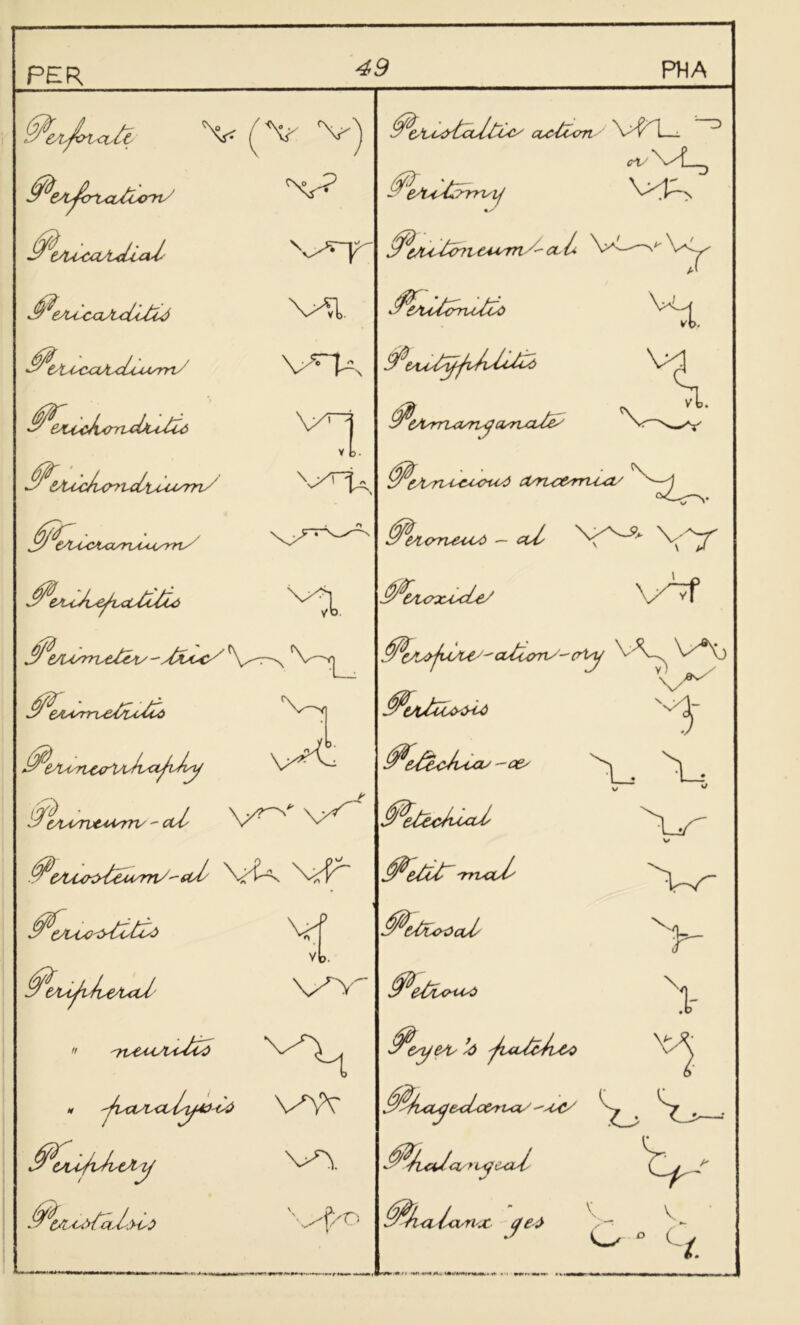 PER 49 PHA
Perforate
Perforation
Pericardial
Pericarditis
Pericardium
Perichondritis
Perichondrium
Pericranium
Perihepatitis
Perimeter-tric
Perimetritis
Perineorrhaphy
Perineum-al
Periosteum-al
Periostitis
Peripheral
" neuritis
" paralysis
Periphery
Peristalsis
Peristaltic action
or
Peritomy
Peritoneum-al
Peritonitis
Perityphlitis
Permanganate
Pernicious anæmia
Peroneus - al
Peroxide
Perspire-ation-ory
Pertussis
Petechia-æ
Petechial
Petit-mal
Petrosal
Petrous
Peyer's patches
Phagedæna-ic
Phalangeal
Phalanx ges